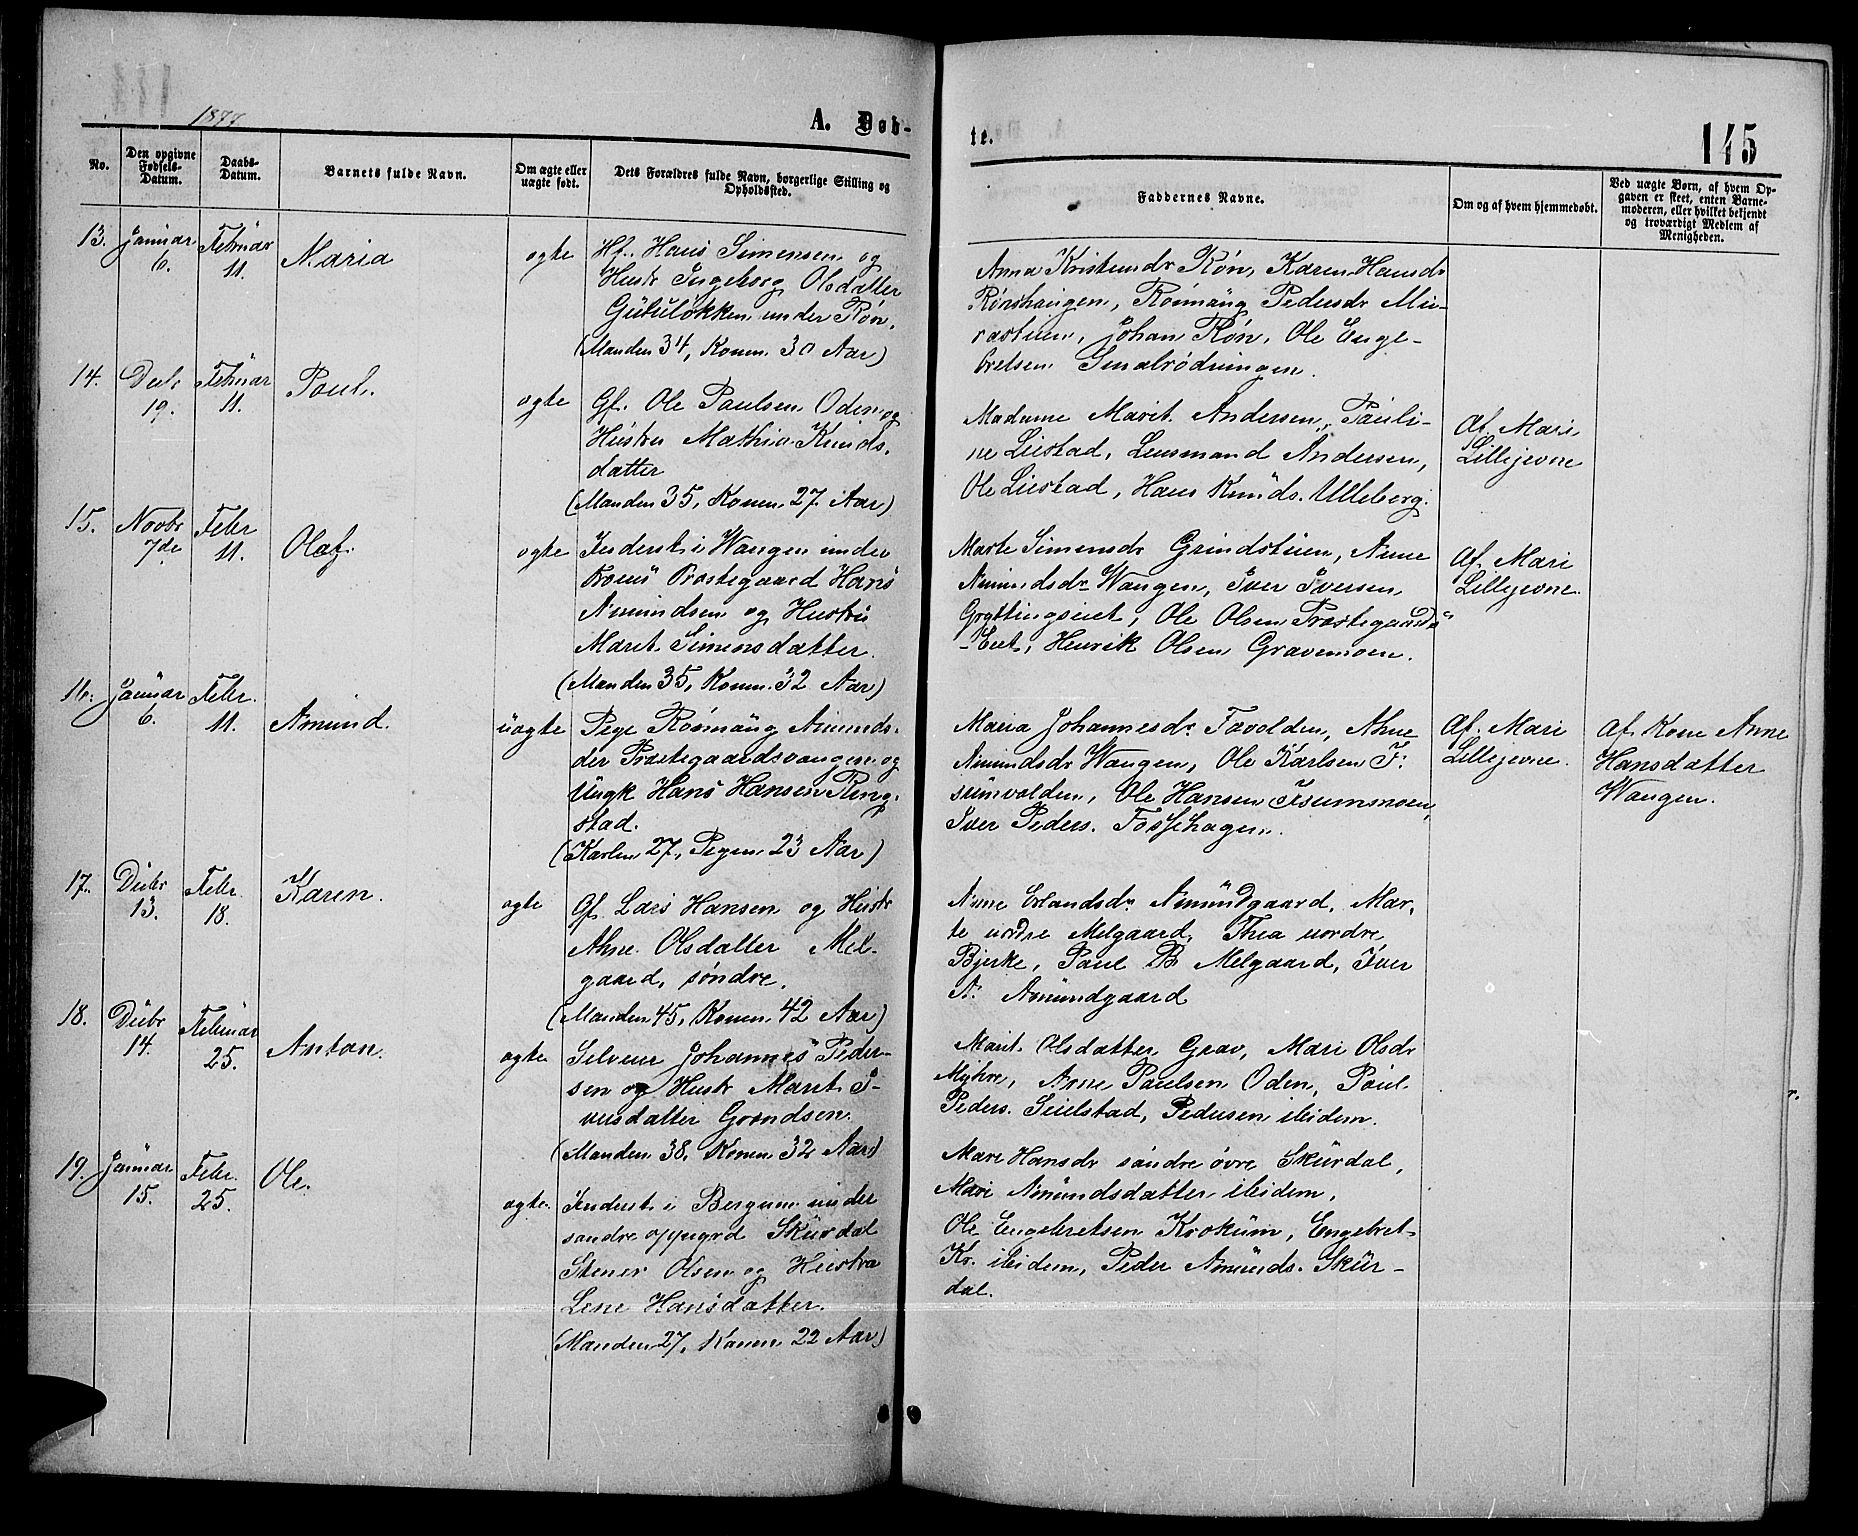 1877
A. Døb-
te.
145
No.
Den opgivne
Fødsels-
Datum.
Daabs-
Datum.
Barnets fulde Navn.
Om ægte eller
uægte født.
Dets Forældres fulde Navn, borgerlige Stilling og
Opholdssted.
Faddernes Navne.
Om og af hvem hjemmedøbt.
Ved uægte Børn, af hvem Op-
gaven er skeet, enten Barne-
moderen, eller hvilket bekjendt
og troværdigt Medlem af
Menigheden.
13.
Januar
6.
Februar
11.
Maria
ægte
Hf. Hans Simensen og
Hustr Ingeborg Olsdatter
Gübuløkken under Røn.
(Manden 34, Konen 30 Aar)
Anna Kristensdr Røn, Karen Hansdr
Rønshaugen, Rønnaug Pedersdr Mu-
rastuen, Johan Røn, Ole Enge-
bretsen Smalrødningen.
14.
Decbr
19.
Februar
11.
Paul.
ægte
Gf. Ole Paulsen Oden og
Hustru Mathia Knuds-
datter
(Manden 35, Konen 27 Aar)
Madame Marit Andersen, Pauli-
ne Liestad, Lensmand Andersen,
Ole Liestad, Hans Knuds. Ulleberg.
Af Mari
Lillejevne
15.
Novbr
7de
Febr
11.
Olaf.
ægte
Inderst i Wangen under
Frons Præstegaard Hans
Amundsen og Hustru
Marit Simensdatter.
(Manden 35, Konen 32 Aar)
Marte Simensdr Grindstuen, Anne
Amundsdr Wangen, Iver Iversen
Gryttingseiet, Ole Olsen Præstegaards
-Eiet, Henrik Olsen Gravemoen.
Af Mari
Lillejevne.
16.
Januar
6.
Febr.
11.
Amund.
uægte
Pige Rønnaug Amunds-
der Præstegaardsvangen og
Ungk Hans Hansen Ring-
stad.
(Karlen 27, Pigen 23 Aar)
Maria Johannesdr Tovolden, Ahne
Amundsdr Wangen, Ole Karlsen F-
sumvolden, Ole Hansen Fsummoen,
Iver Peders. Fossehagen.
Af Mari
Lillejevne.
Af Kone Anne
Hansdatter
Wangen.
17.
Decbr
13.
Febr.
18.
Karen.
ægte
Gf. Lars Hansen og Hustr
Ahne Olsdatter Mel-
gaard, søndre.
(Manden 45, Konen 42 Aar)
Anne Erlandsdr Amundgaard, Mar-
te nordre Melgaard, Thea nordre
Bjerke, Paul B Melgaard, Iver
A. Amundgaard
18.
Decbr
14.
Februar
25.
Anton.
ægte
Selveier Johannes Peder-
sen og Hustr Marit I-
versdatter Grøndsen.
(Manden 38, Konen 32 Aar)
Marit Olsdatter Grav, Mari Olsdr
Myhre, Arne Paulsen Oden, Paul
Peders. Seielstad, Pedersen ibidem.
19.
Januar
15.
Febr.
25.
Ole.
ægte.
Inderst i Bergum under
søndre oppigrd Skurdal
Stener Olsen og Hustru
Lene Hansdatter.
(Manden 27, Konen 22 Aar)
Mari Hansdr søndre øvre Skurdal,
Mari Amundsdatter ibidem,
Ole Engebretsen Krokum, Engebret
Kr. ibidem, Peder Amunds. Skur-
dal.